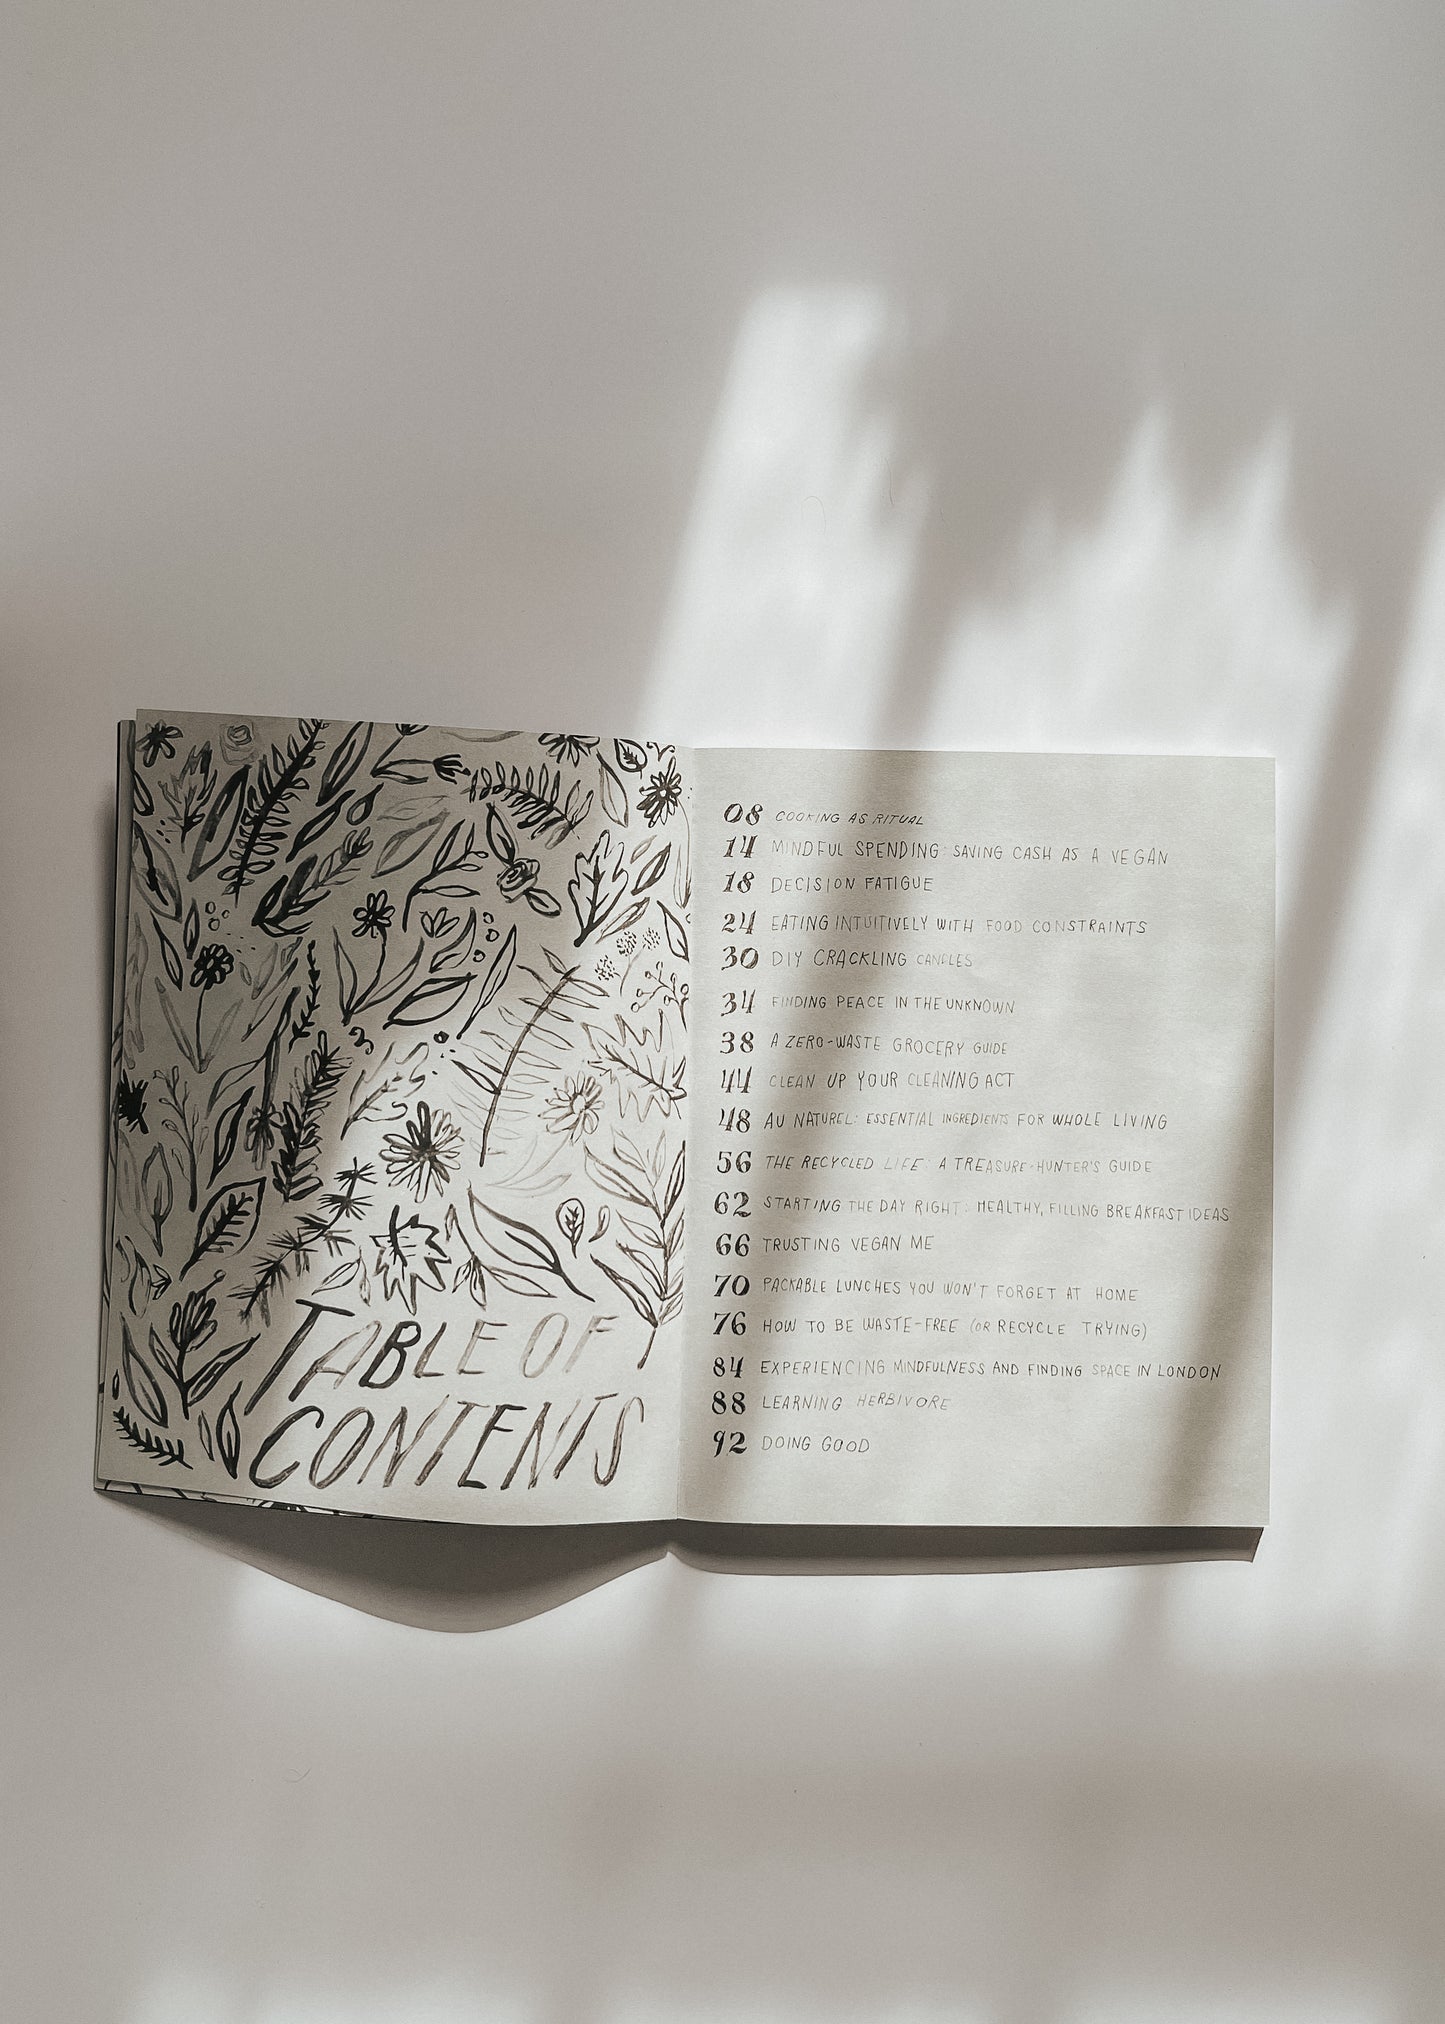 TABLE OF
CONTENTS
08 COOKING AS RITUAL
14 MINDFUL SPENDING: SAVING CASH AS A VEGAN
18 DECISION FATIGUE
24 EATING INTUITIVELY WITH FOOD CONSTRAINTS
30 DIY CRACKLING CANDLES
34 FINDING PEACE IN THE UNKNOWN
38 A ZERO-WASTE GROCERY GUIDE
44 CLEAN UP YOUR CLEANING ACT
48 AU NATUREL: ESSENTIAL INGREDIENTS FOR WHOLE LIVING
56 THE RECYCLED LIFE: A TREASURE-HUNTER'S GUIDE
62 STARTING THE DAY RIGHT: HEALTHY, FILLING BREAKFAST IDEAS
66 TRUSTING VEGAN ME
70 PACKABLE LUNCHES YOU WON'T FORGET AT HOME
76 HOW TO BE WASTE-FREE (OR RECYCLE TRYING)
84 EXPERIENCING MINDFULNESS AND FINDING SPACE IN LONDON
88 LEARNING HERBIVORE
92 DOING GOOD